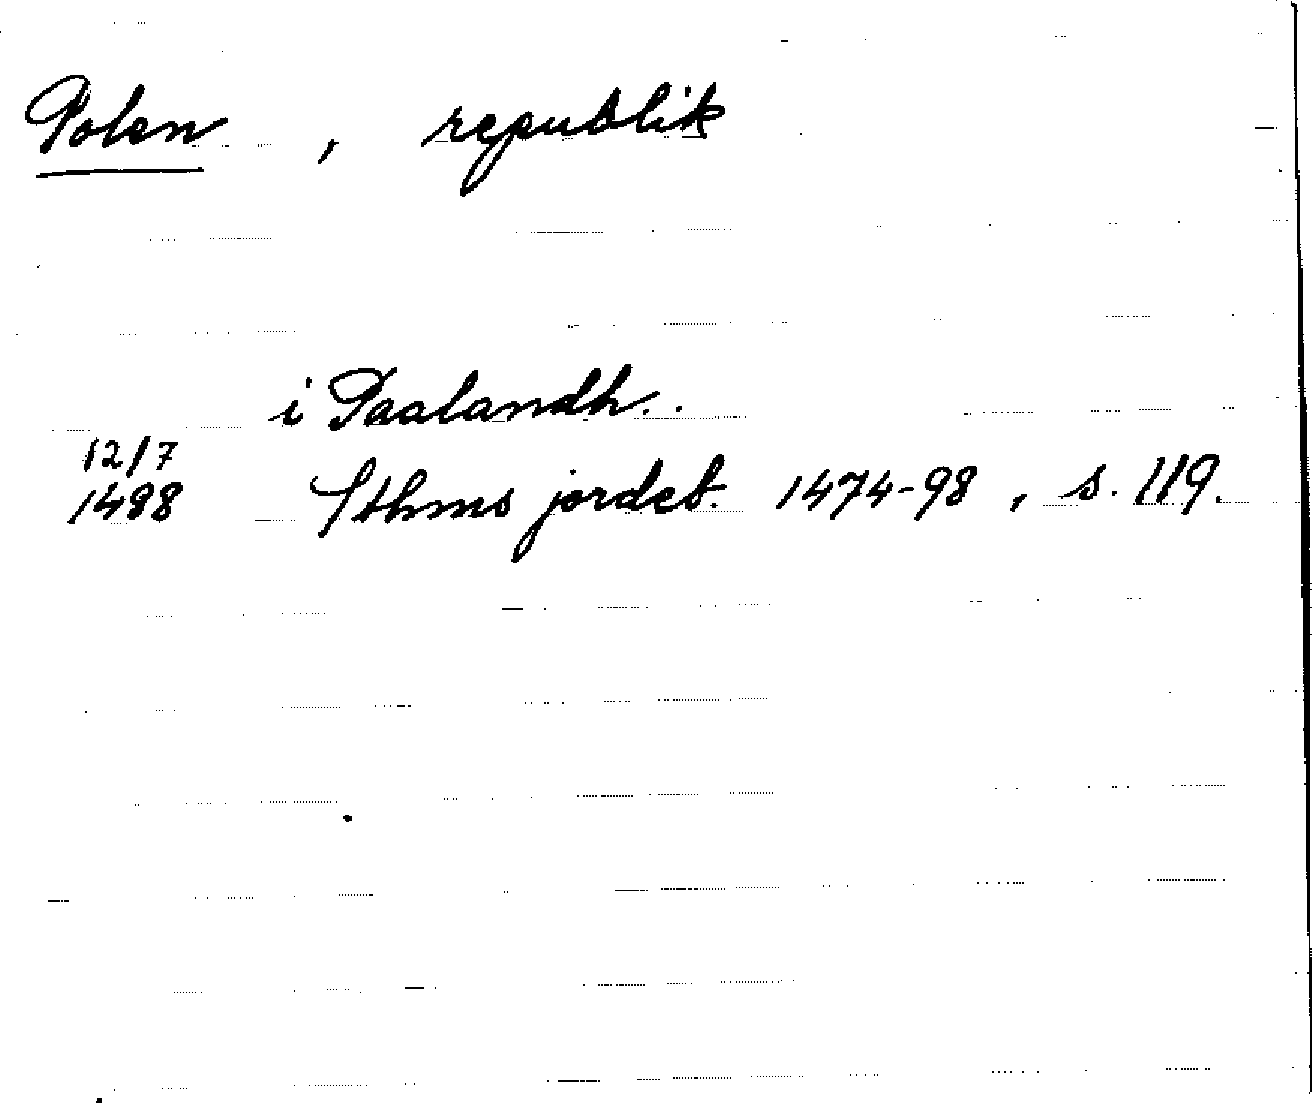 Polen, republik
i Paalandh..
12/7
1488 Sthms jordeb. 1474-98, s. 119.